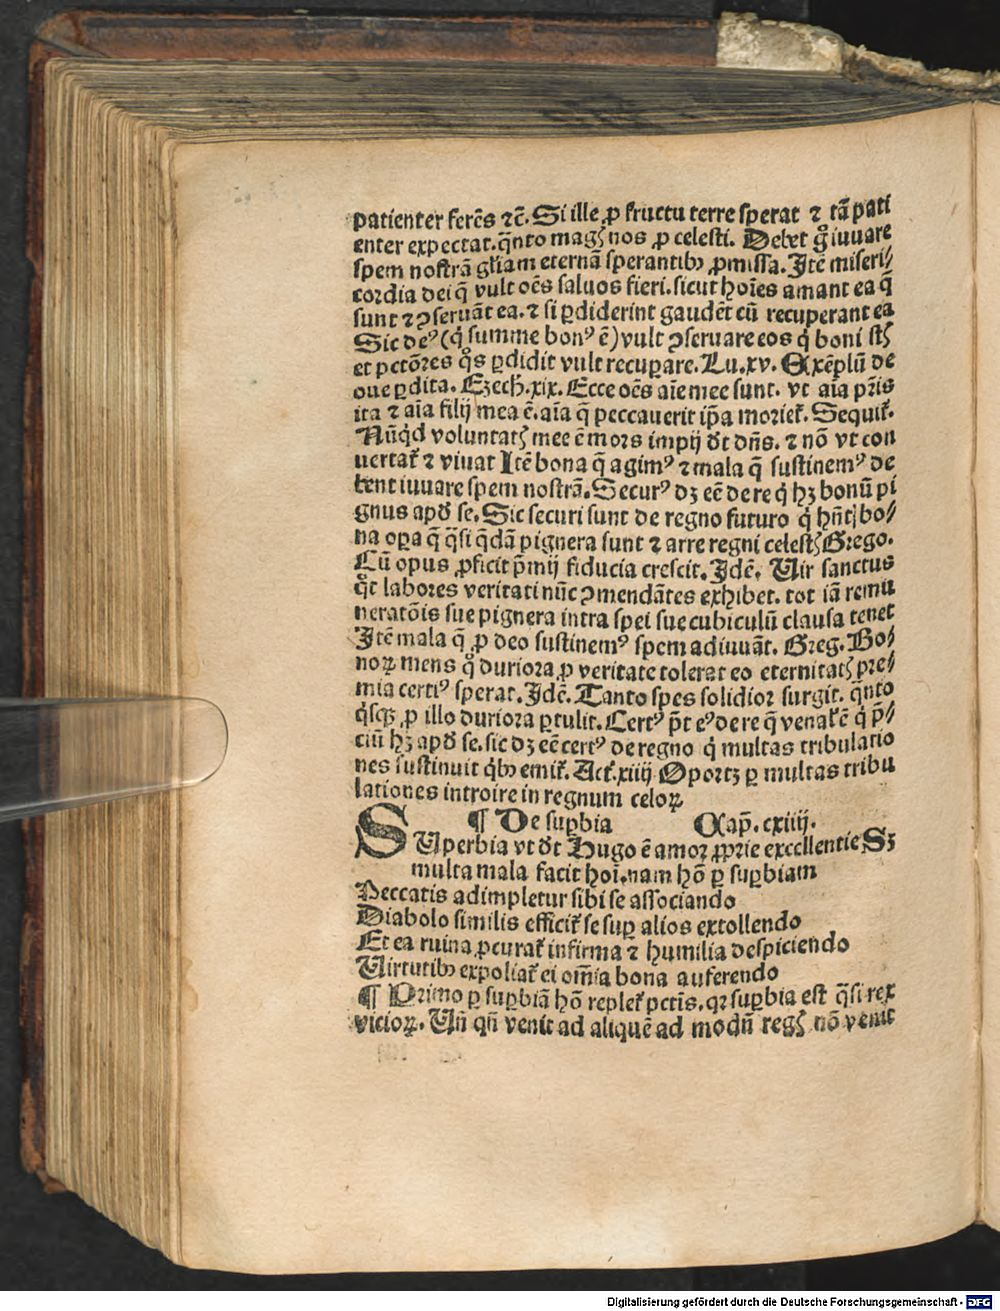 patienter ferēs ⁊c̄. Si ille ꝓ fructu terre sperat ⁊ tā pati
enter expectat. q̄nto magꝭ nos ꝓ celesti. Debet g̊ iuuare
spem nostrā gl̄iam eternā sperantibꝫ ꝓmissa. Itē miseri⸗
cordia dei q̄ vult oēs saluos fieri. sicut hoīes amant ea q̄
sunt ⁊ ꝯseruāt ea. ⁊ si ꝑdiderint gaudēt cū recuperant ea
Sic deꝰ (q̇ summe bonꝰ ē) vult ꝯseruare eos q̇ boni sꝭ
et pctōres q̊s ꝑdidit vult recuꝑare. Lu. xv. Exēplū de
oue ꝑdita. Ezech. xix. Ecce oēs aīe mee sunt. vt aīa pr̄is
ita ⁊ aīa filij mea ē. aīa q̄ peccauerit ip̄a morieť. Sequiť.
Nūq̇d voluntatꝭ mee ē mors impij dt̄ dn̄s. ⁊ nō vt con
uertať ⁊ viuat Itē bona q̄ agimꝰ ⁊ mala q̄ sustinemꝰ de
bent iuuare spem nostrā. Securꝰ dꝫ eē de re q̇ hꝫ bonū pi
gnus apd̄ se. Sic securi sunt de regno futuro q̇ hn̄t bo⸗
na oꝑa q̄ q̄si q̄dā pignera sunt ⁊ arre regni celestꝭ Grego.
Cū opus ꝓficit p̄mij fiducia crescit. Idē. Uir sanctus
q̊t labores veritati nūc ꝯmendātes exhibet. tot iā remu
neratōis sue pignera intra spei sue cubiculū clausa tenet
Itē mala q̄ ꝓ deo sustinemꝰ spem adiuuāt. Greg. Bo⸗
noꝝ mens q̊ duriora ꝓ veritate tolerat eo eternitatꝭ pre⸗
mia certiꝰ sperat. Idē. Tanto spes solidior surgit. q̄nto
q̇sqꝫ ꝓ illo duriora ꝑtulit. Certꝰ pt̄ eꝰ de re q̄ venať ē q̇ p̄⸗
ciū hꝫ apd̄ se. sic dꝫ eē certꝰ de regno q̇ multas tribulatio
nes sustinuit q̇bꝫ emiť. Act. xiiij Oportꝫ ꝑ multas tribu
lationes introire in regnum celoꝝ
¶ De suꝑbia Cap̄. cxiiij.
SUperbia vt dt̄ Hugo ē amor ꝓprie excellentie Sꝫ
multa mala facit hoī. nam hō ꝑ suꝑbiam
Peccatis adimpletur sibi se associando
Diabolo similis efficiť se suꝑ alios extollendo
Et ea ruina ꝓcurať infirma ⁊ humilia despiciendo
Uirtutibꝫ expoliať ei om̄ia bona auferendo
¶ Primo ꝑ suꝑbiā hō repleť pctīs. qꝛ suꝑbia est q̄si rex
vicioꝝ. Un̄ qn̄ venit ad aliquē ad modū regꝭ nō venit
Digitalisierung gefördert durch die Deutsche Forschungsgemeinschaft - DFG